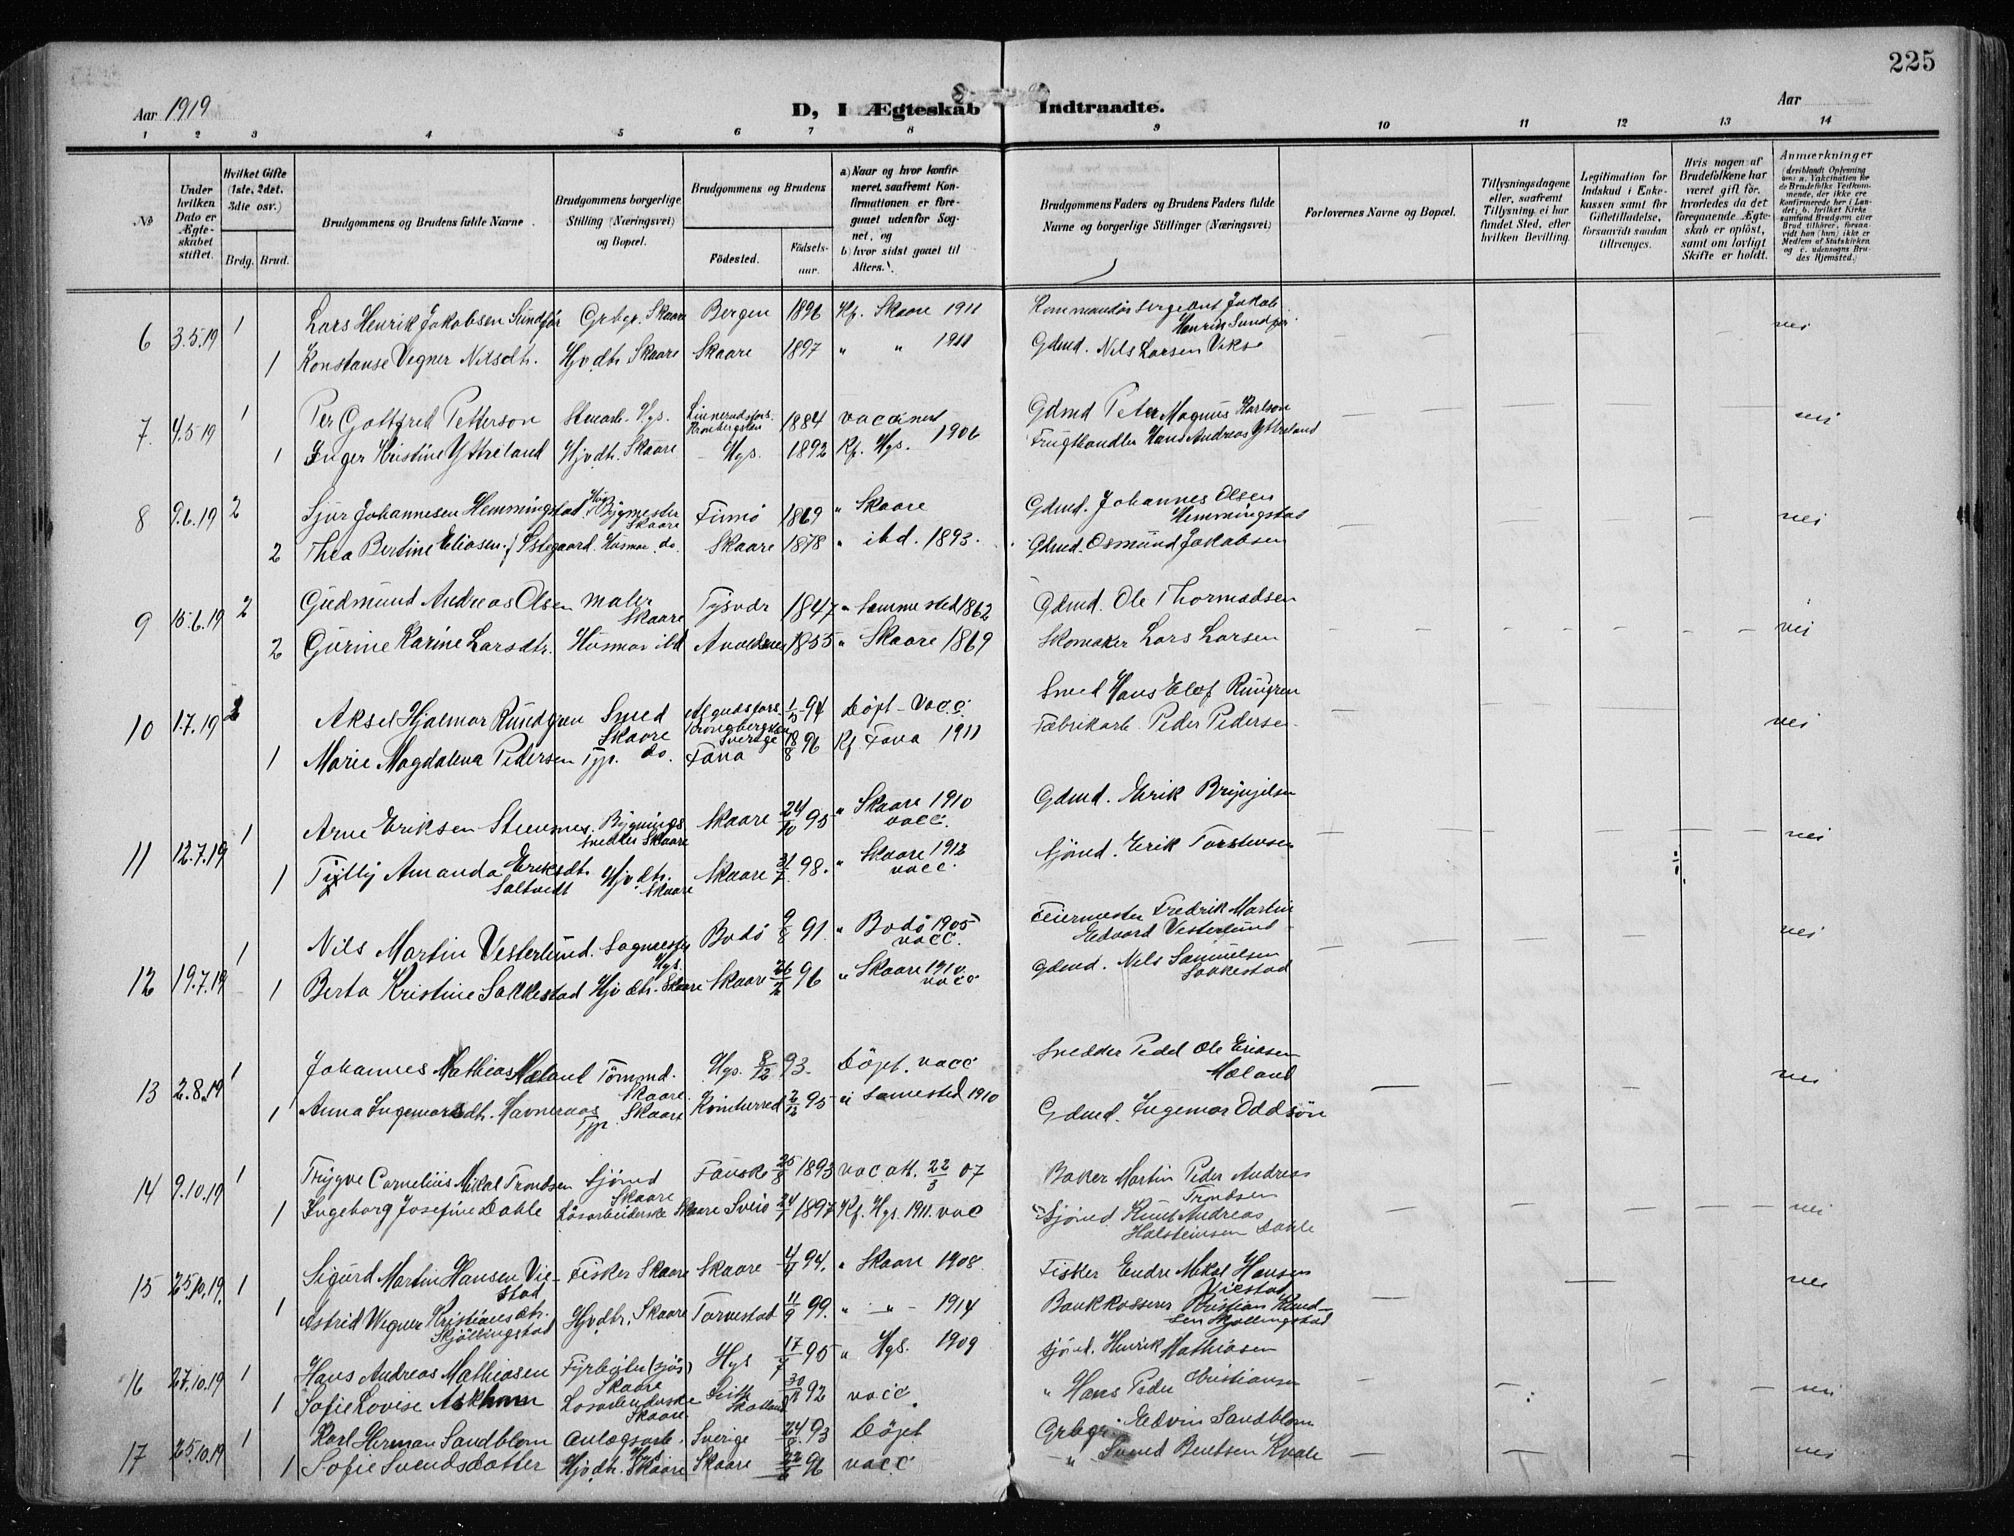 225
Aar 1919
D, I Ægteskab Indtraadte.
Aar
1 2 3 4 5 6 7 8 9 10 11 12 13 14
No
Under hvilken Dato er Ægteskabet stiftet.
Hvilket Gifte (1ste, 2det, 3die osv.)
Brdg. Brud.
Brudgommens og Brudens fulde Navne.
Brudgommens borgerlige Stilling (Næringsvei) og Bopæl.
Brudgommens og Brudens
Fødested.
Fødselsaar.
a) Naar og hvor konfirmeret, saafremt Konfirmationen er foregaaet udenfor Sognet, og
b) hvor sidst gaaet til Alters.
Brudgommens Faders og Brudens Faders fulde Navne og borgerlige Stillinger (Næringsvei)
Forlovernes Navne og Bopæl.
Tillysningsdagene eller, saafremt Tillysning ei har fundet Sted, efter hvilken Bevilling.
Legitimation for Indskud i Enkekassen samt for Giftetilladelse, forsaavidt saadan tiltrænges.
Hvis nogen af Brudefolkene har været gift før, hvorledes da det foregaaende Ægteskab er opløst, samt om lovligt Skifte er holdt.
Anmærkninger
6 3.5.19 1 Lars Henrik Jakobsen Sundfør Grbgr. Skaare Bergen 1896 Kf. Skaare 1911 Kommandørsergeant Jakob Henrik Sundfør nei
1 Konstanse Vegner Nilsdtr. Hjvdtr. Skaare Skaare 1897 " " 1911 Gdmd. Nils Larsen Vikse
7. 4.5.19 1 Per Gottfred Petterson Stenarb. Hgs. 1884 vaccinert Gdmd Peter Magnus Karlson nei
1 Inger Kristine Ytreland Hjvdtr. Skaare Hgs. 1892 Kf. Hgs. 1906 Frugthandler Hans Andreas Ytreland
8 9.6.19 2 Sjur Johannesen Hemmingstad Bygmester Skaare Finnø 1869 " Skaare Gdmd. Johannes Olsen Hemmingstad nei
2 Thea Bertine Eliasen f. Østegaard. Husmor do. Skaare 1878 " ibd. 1893. Gdmd. Osmund Jakobsen
9 15.6.19 2 Gudmund Andreas Olsen maler Skaare Tysvær 1847 " Sammested 1862 Gdmd. Ole Thormodsen nei
2 Gurine Karine Larsdtr. Husmor ibd Avaldsnes 1855 " Skaare 1869 Skomaker Lars Larsen
10 1.7.19 Aksel Hjalmar Rundgren Smed Skaare Kronbergslen Sverige 94 Døpt - Vacc. Smed Hans Elof Rungren nei
1 Marie Magdalena Pedersen Tjp. do. Fana 18/8 96 Kf Fana 1911 Fabrikarb. Peder Pedersen
11 12.7.19 1 Arne Eriksen Steensnes. Bygningssnedker Skaare Skaare 24/10 95 " Skaare 1910 vacc. Gdmd. Erik Brynjelsen nei
1 Tylly Amanda Eriksdtr. Saltvedt Hjvdtr. Skaare Skaare 98. " Skaare 1912 vacc Sjømd. Erik Torstensen
12 19.7.19 1 Nils Martin Vesterlund. Sagmester Hgs. Bodø 9/8 91 " Bodø 1905 vacc. Feiermester Fredrik Martin Edvard Vesterlund nei
1 Berta Kristine Sakkestad Hjvdtr. Skaare Skaare 26/2 96 " Skaare 1910 vacc Gdmd. Nils Samuelsen Sakkestad
13 2.8.19 1 Johannes Mathias Mæland Tømmd. Skaare Hgs. 8/12 93. Døpt. vacc Snedker Pedel Ole Eriksen Mæland nei
1 Anna Ingemarsdtr. Havneraas Tjp. Skaare Kvinherred 2/12 95 " Samested 1910 Gdmd. Ingemar Oddsøn
14 9.10.19 1 Trygve Cornelius Mikal Trondsen Sjømd Skaare Fauske 25/8 1893 vac att. 22/3 07 Baker Martin Peder Andreas Trondsen
1 Ingeborg Josefine Dahle Løsarbeiderske Skaare Sveio 24/7 1897 Kf. Hgs. 1911. vac Sjømd Knut Andreas Halsteinsen Dahle nei
15 25.10.19. 1 Sigurd Martin Hansen Viestad Fisker Skaare Skaare 94. " Skaare 1908. Fisker Endre Mikal Hansen Viestad nei
1 Astrid Wegner Kristiansdtr. Skjøllingstad Hjvdtr. Skaare Torvestad 11/9 99. " " 1914 Bankkasserer Kristian Knudsen Skjøllingstad
16 27.10.19 1 Hans Andreas Mathiasen Fyrbøter (sjøs) Skaare Hgs 17/7 95 " Hgs. 1909 sjømd. Henrik Mathiasen
1 Sofie Lovise Askham Løsarbeiderske Skaare. Leith Skotland 92 vacc. " Hans Peder Christiansen nei
17 25.10.19 1 Karl Herman Sandblom anlægsarb. Sverige 24/8 93 Døpt Grbgr. Edvin Sandblom
1 Sofie Svendsdatter Hjvdtr. Skaare Skaare 96 vacc " Svend Bentsen Kvale nei